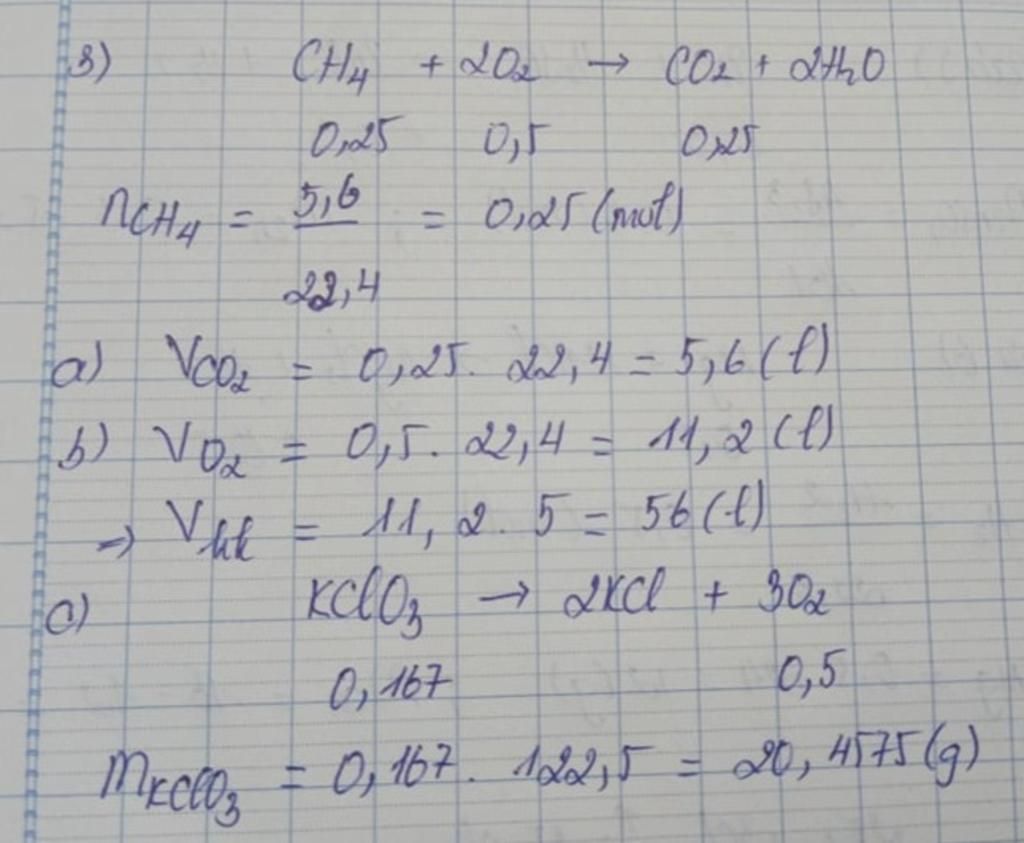 3) CH₄ + 2O₂ → CO₂ + 2H₂O
0,25 0,5 0,25
nCH₄ = 5,6 / 22,4 = 0,25 (mol)
a) VCO₂ = 0,25. 22,4 = 5,6 (l)
b) VO₂ = 0,5. 22,4 = 11,2 (l)
→ Vkk = 11,2. 5 = 56 (l)
c) KClO₃ → 2KCl + 3O₂
0,167 0,5
mKClO₃ = 0,167. 122,5 = 20,4575 (g)